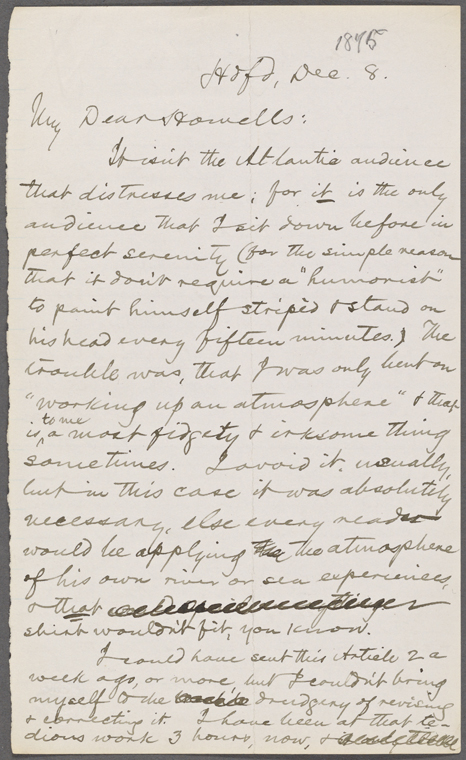 1875
Hdfd, Dec. 8.
My Dear Howells:
It isn't the Atlantic audience
that distresses me; for it is the only
audience that I sit down before in
perfect serenity (for the simple reason
that it don't require a "humorist"
to paint himself striped & stand on
his head every fifteen minutes.) The
trouble was, that I was only bent on
"working up an atmosphere" & that
is to me a most fidgety & irksome thing
sometimes. I avoid it, usually,
but in this case it was absolutely
necessary, else every reader
would be applying the atmosphere
of his own river or sea experiences,
& that
shirt wouldn't fit, you know.
I could have sent this Article 2 a
week ago, or more, but I couldn't bring
myself to the drudgery of revising
& correcting it. I have been at that te-
dious work 3 hours, now, &